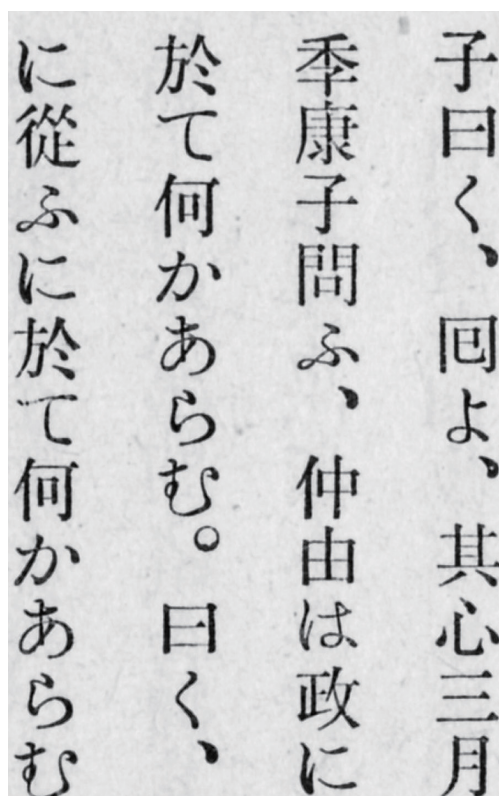 子曰く、囘よ、其心三月
季康子問ふ、仲由は政に
於て何かあらむ。曰く、
に從ふに於て何かあらむ